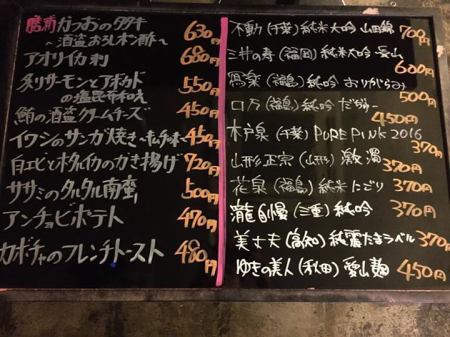 勝浦 かつおのタタキ 630円
～酒盗おろしポン酢～
アオリイカ刺 680円
炙りサーモンとアボカド
の塩昆布和え 550円
鮪の酒盗クリームチーズ 450円
イワシのサンガ焼き 450円
白エビとホタルイカのかき揚げ 720円
ササミのタルタル南蛮 500円
アンチョビポテト 470円
カボチャのフレンチトースト 480円
不動 (千葉) 純米大吟 山田錦 700円
三井の寿 (福岡) 純米大吟 600円
寫楽 (福島) 純吟 おりがらみ 500円
ロ万 (福島) 純吟 450円
木戸泉 (千葉) PURE PINK 2016 370円
山形正宗 (山形) 370円
花泉 (福島) 純米 にごり 370円
瀧自慢 (三重) 純吟 370円
美丈夫 (高知) 純 たまラベル 370円
ゆきの美人 (秋田) 愛山麹 450円